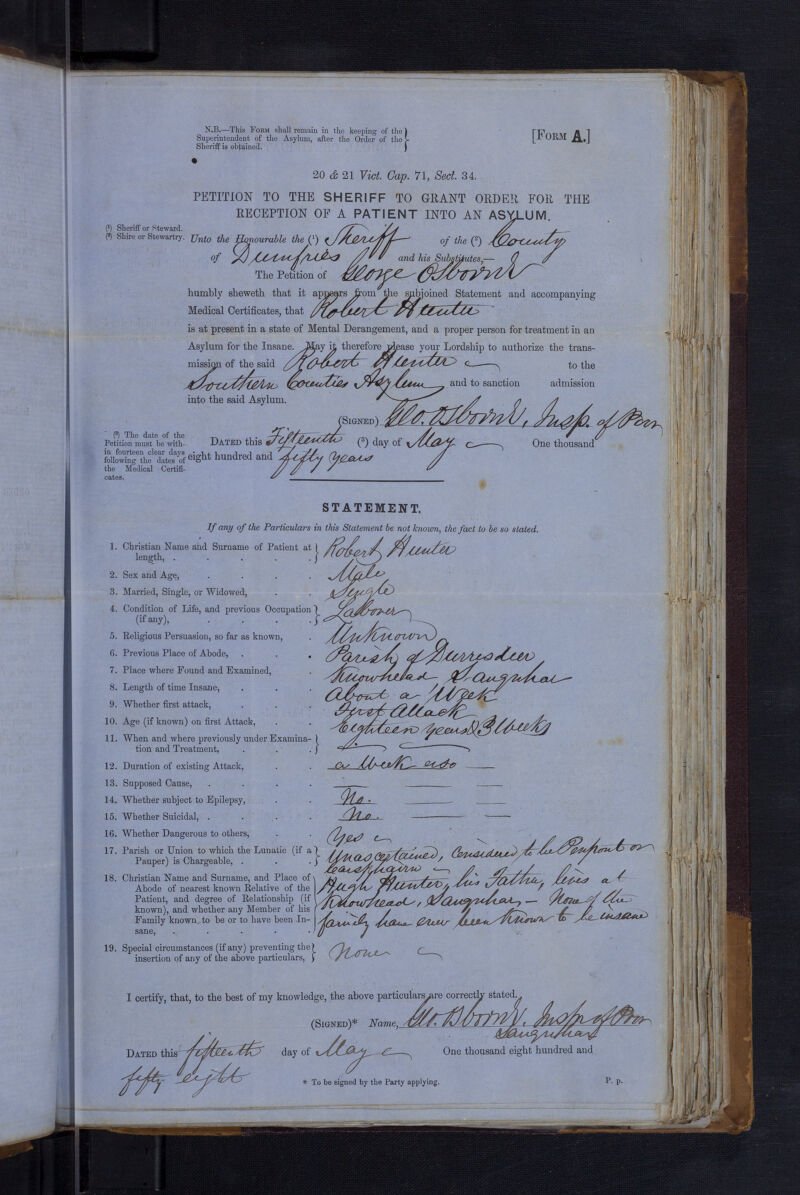 N.B.—This Form shall remain in the keeping of the
Superintendent of the Asylum, after the Order of the
Sheriff is obtained.
[Form A.]
20 & 21 Vict. Cap. 71, Sect. 34.
PETITION TO THE SHERIFF TO GRANT ORDER FOR THE
RECEPTION OF A PATIENT INTO AN ASYLUM.
(1) Sheriff or Steward.
(2) Shire or Stewartry.
Unto the Honourable the (1) Sheriff of the (2) County
of Dumfries and his Substitutes,—
The Petition of George Osborne
humbly sheweth that it appears from the subjoined Statement and accompanying
Medical Certificates, that Robert Hunter
is at present in a state of Mental Derangement, and a proper person for treatment in an
Asylum for the Insane. May it therefore please your Lordship to authorize the trans-
mission of the said Robert Hunter to the
Southern Counties Asylum and to sanction admission
into the said Asylum.
(Signed) Geo. Osborne, Insp. of Poor
(3) The date of the
Petition must be with-
in fourteen clear days
following the dates of
the Medical Certifi-
cates.
Dated this Fifteenth (3) day of May One thousand
eight hundred and fifty years
STATEMENT.
If any of the Particulars in this Statement be not known, the fact to be so stated.
1. Christian Name and Surname of Patient at
length, . . . . . Robert Hunter
2. Sex and Age, . . . . Male
3. Married, Single, or Widowed, . . Single
4. Condition of Life, and previous Occupation
(if any), . . . . . Labborer
5. Religious Persuasion, so far as known, . Unknown
6. Previous Place of Abode, . . . Parish of Durrisdeer
7. Place where Found and Examined, . Knowhead Sanquhar
8. Length of time Insane, . . . About a Week
9. Whether first attack, . . . First Attack
10. Age (if known) on first Attack, . . Eighteen years & 3 Weeks
11. When and where previously under Examina-
tion and Treatment, . . .
12. Duration of existing Attack, . . a Week
13. Supposed Cause, . . . .
14. Whether subject to Epilepsy, . . No.
15. Whether Suicidal, . . . . No.
16. Whether Dangerous to others, . . Yes
17. Parish or Union to which the Lunatic (if a
Pauper) is Chargeable, . . . Unascertained, Considered to be Penpont or
Carsphairn
18. Christian Name and Surname, and Place of
Abode of nearest known Relative of the
Patient, and degree of Relationship (if
known), and whether any Member of his
Family known to be or to have been In-
sane, . . . . .
Hugh Hunter, his Father, lives at
Knowhead, Sanquhar, — None of the
family have ever been known to be insane
19. Special circumstances (if any) preventing the
insertion of any of the above particulars, None
I certify, that, to the best of my knowledge, the above particulars are correctly stated.
(Signed)* Name, Geo. Osborne, Insp of Poor
Sanquhar
Dated this fifteenth day of May One thousand eight hundred and
fifty eight
* To be signed by the Party applying.
P. p.